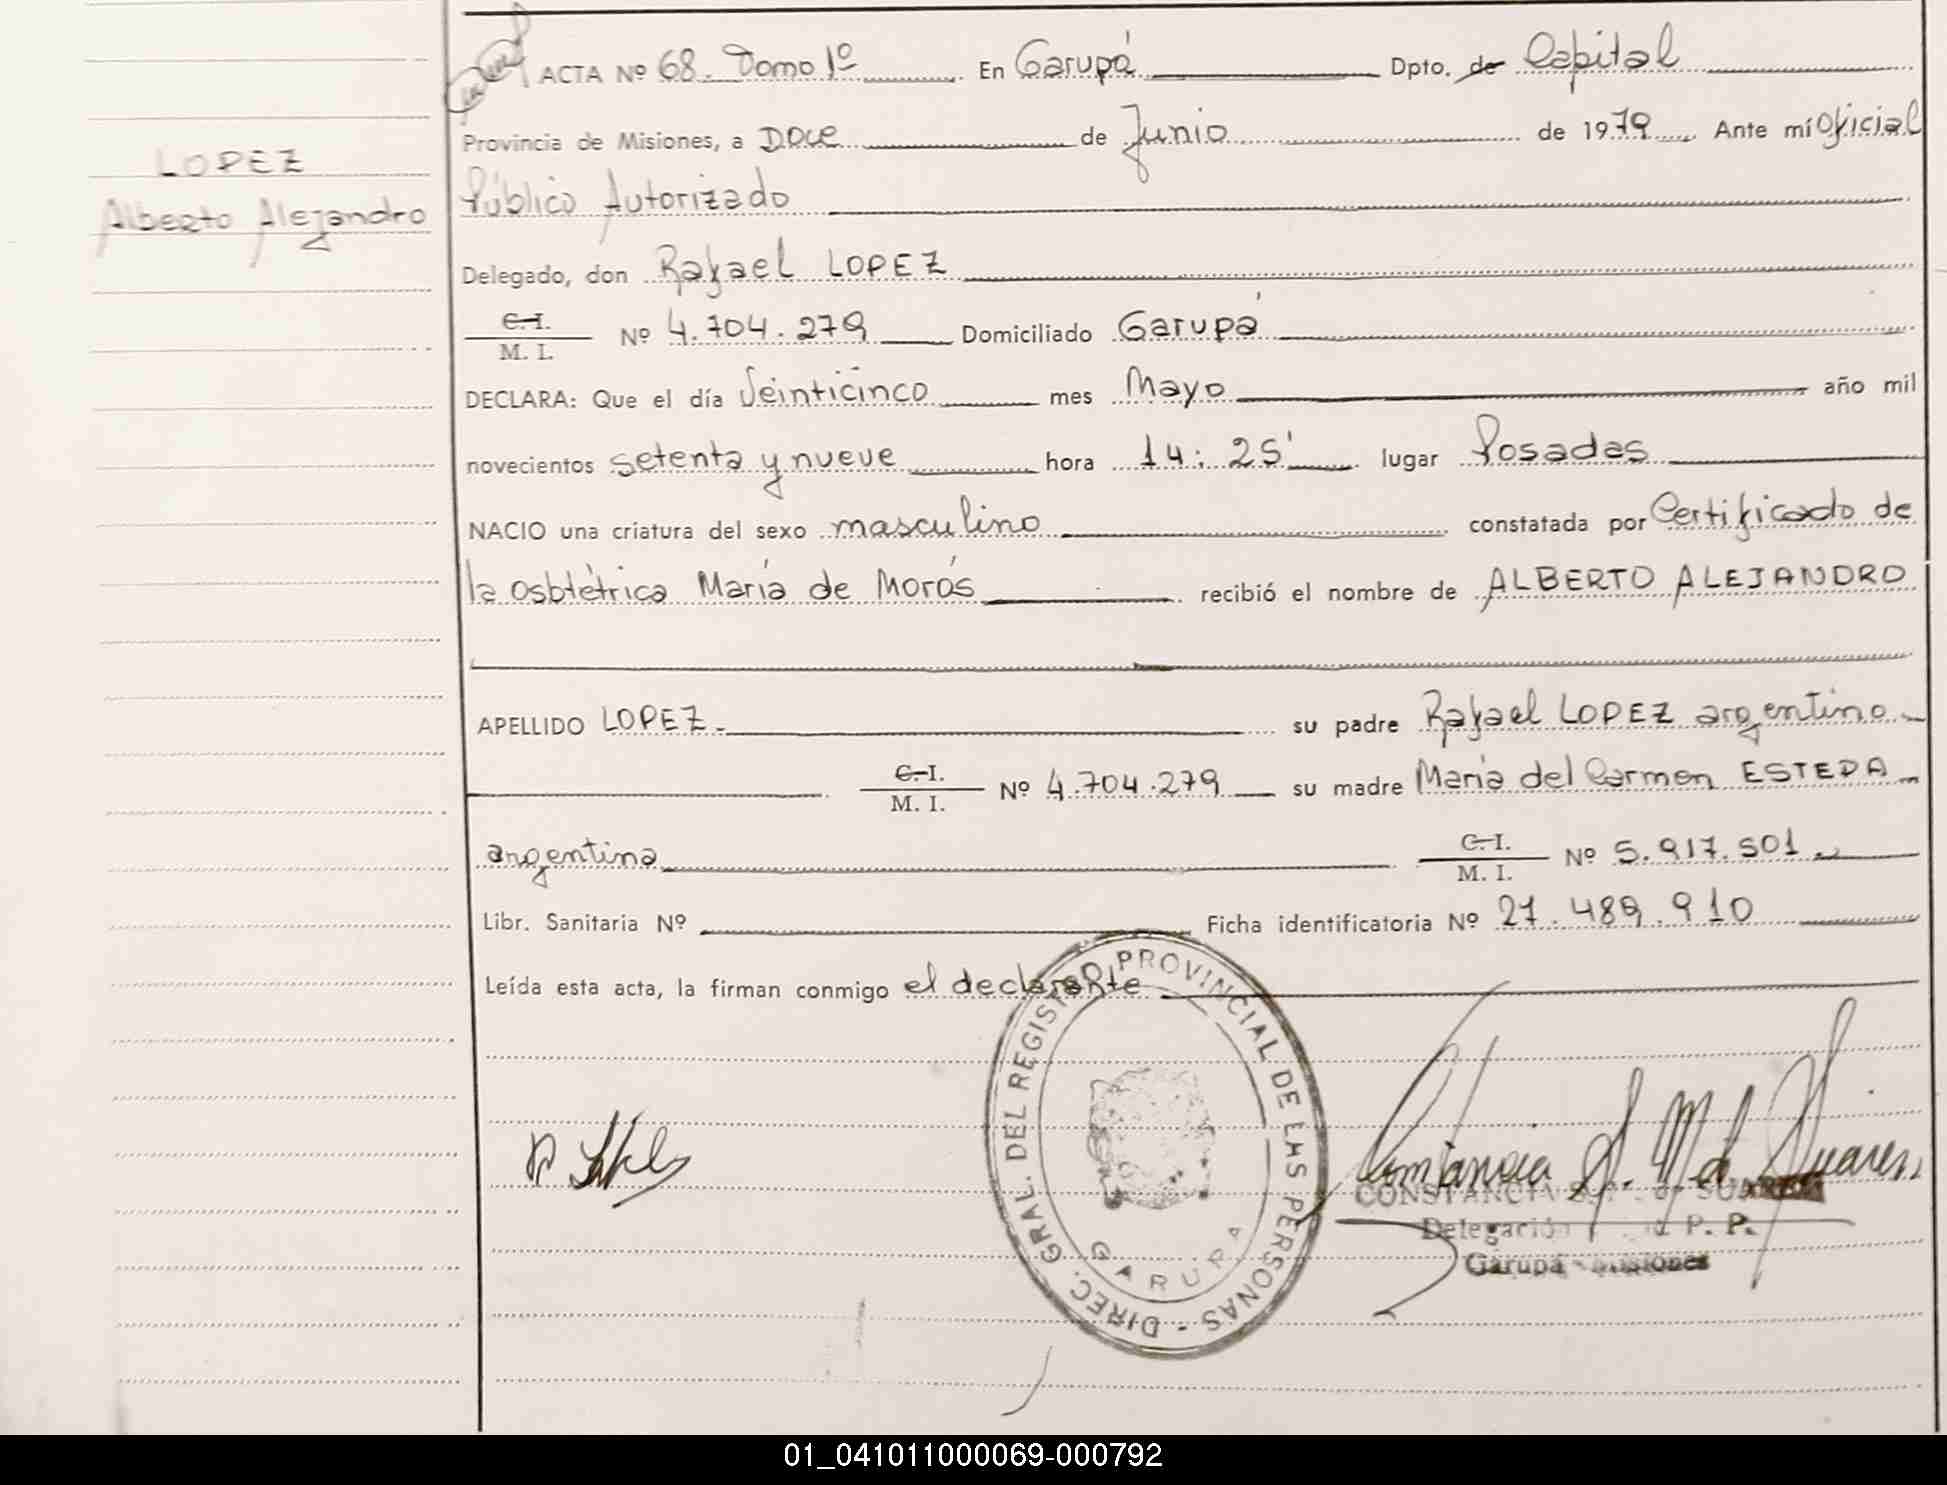 LOPEZ
Alberto Alejandro
ACTA Nº 68. Tomo 1º En Garupá Dpto. de Capital
Provincia de Misiones, a Doce de Junio de 1979 Ante mí Oficial
Público Autorizado
Delegado, don Rafael LOPEZ
C. I.
M. I. Nº 4.704.279 Domiciliado Garupá
DECLARA: Que el día Veinticinco mes Mayo año mil
novecientos setenta y nueve hora 14:25' lugar Posadas
NACIO una criatura del sexo masculino constatada por Certificado de
la Osbtétrica María de Morós recibió el nombre de ALBERTO ALEJANDRO
APELLIDO LOPEZ.- su padre Rafael LOPEZ argentino
C. I.
M. I. Nº 4.704.279 su madre María del Carmen ESTEPA
argentina C. I.
M. I. Nº 5.917.501
Libr. Sanitaria Nº Ficha identificatoria Nº 27.489.910
Leída esta acta, la firman conmigo el declarante
DIREC. GRAL. DEL REGISTRO PROVINCIAL DE LAS PERSONAS -
GARUPA
Constancia S. M. de Suarez
CONSTANCIA de SUAREZ
Delegación P. P.
Garupá - Misiones
01_041011000069-000792